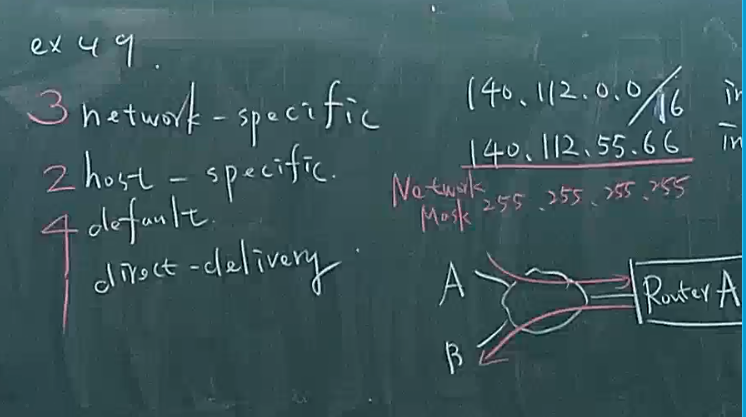 ex 49.
3 network-specific
2 host-specific.
4 default.
1 direct-delivery.
140.112.0.0/16
140.112.55.66
Network
Mask 255.255.255.255
A
B
Router A
in
in